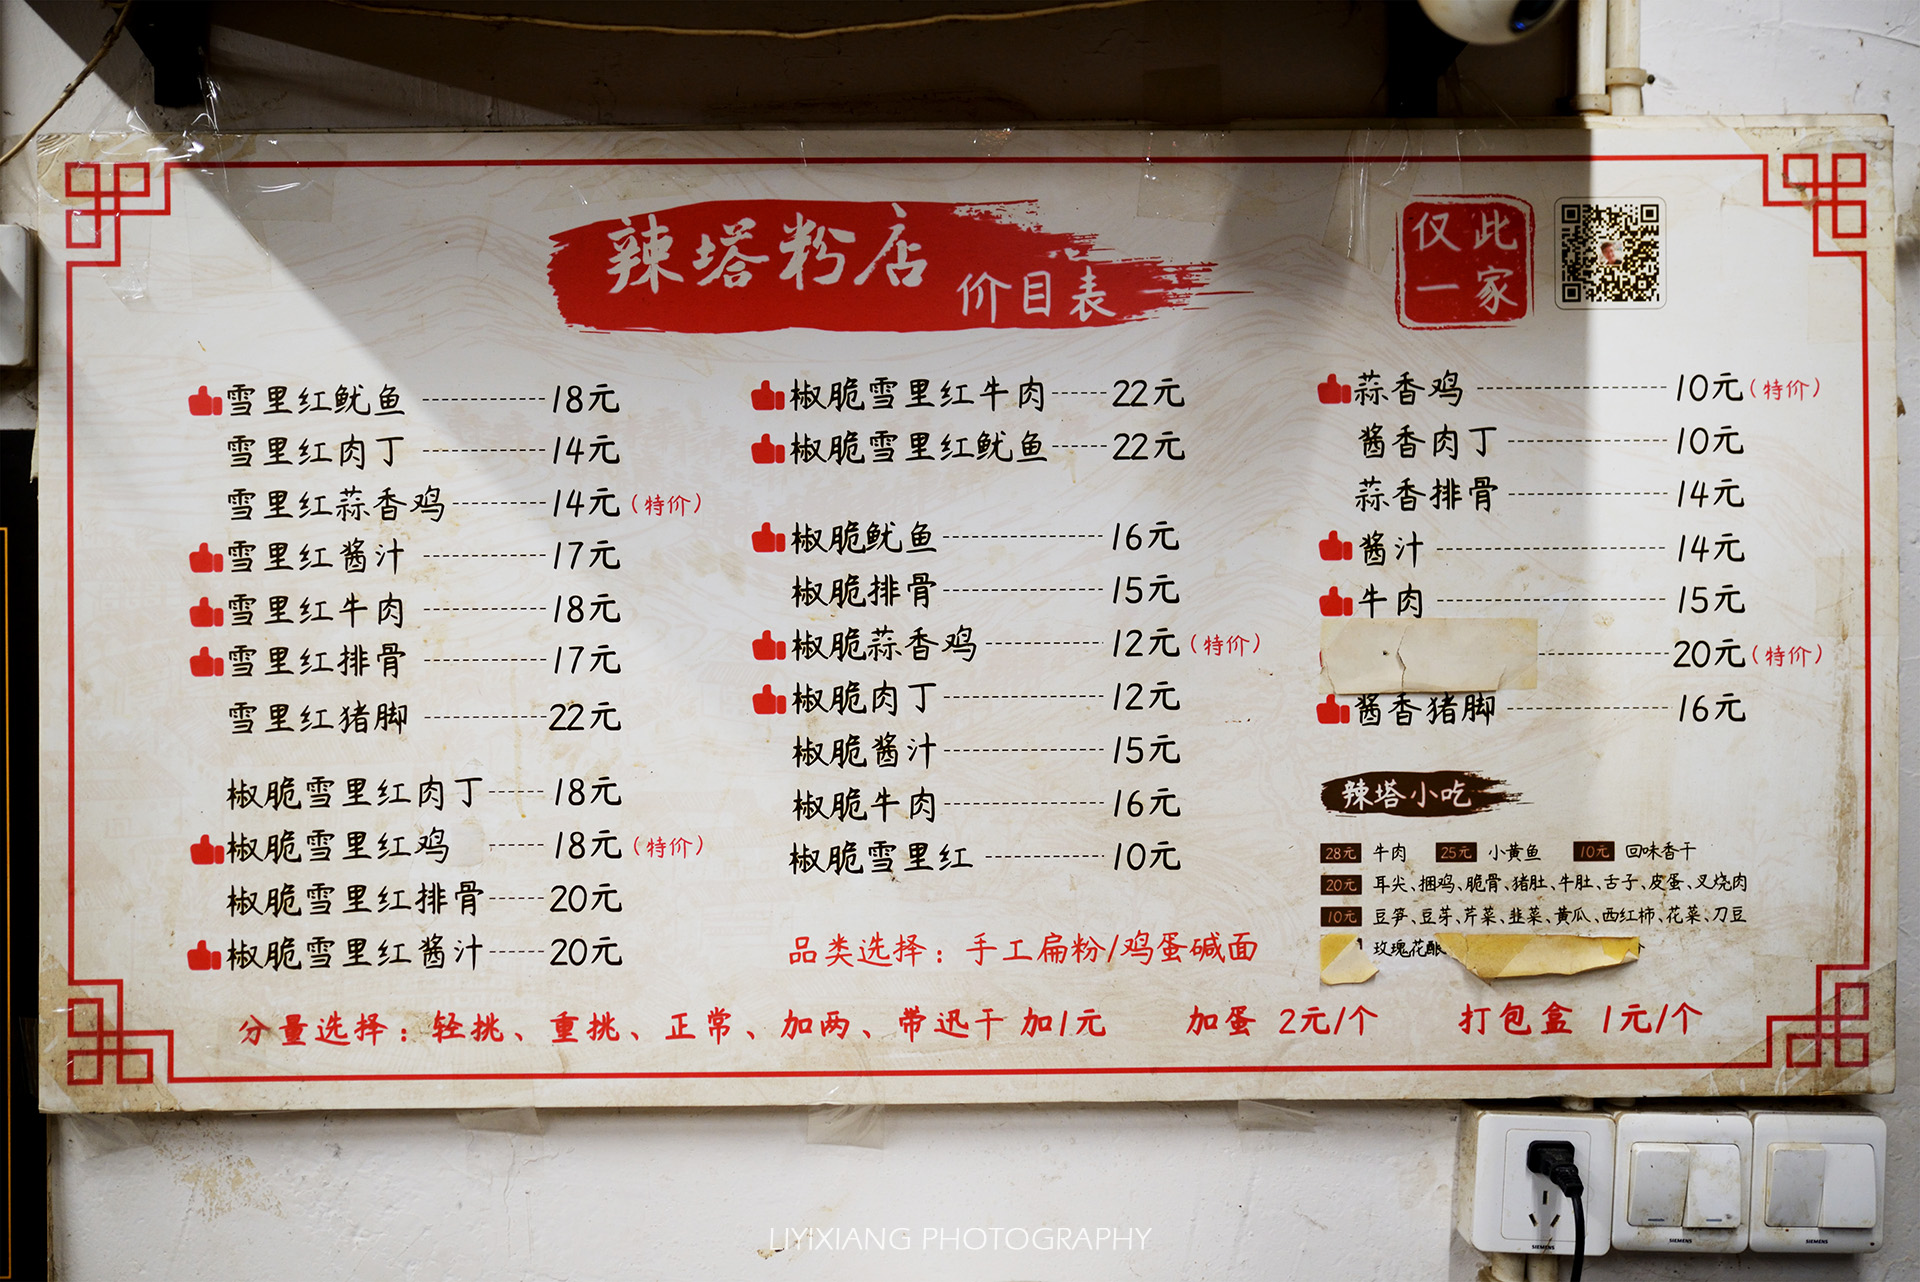 辣塔粉店 价目表
仅此
一家
雪里红鱿鱼 18元
雪里红肉丁 14元
雪里红蒜香鸡 14元(特价)
雪里红酱汁 17元
雪里红牛肉 18元
雪里红排骨 17元
雪里红猪脚 22元
椒脆雪里红肉丁 18元
椒脆雪里红鸡 18元(特价)
椒脆雪里红排骨 20元
椒脆雪里红酱汁 20元
椒脆雪里红牛肉 22元
椒脆雪里红鱿鱼 22元
椒脆鱿鱼 16元
椒脆排骨 15元
椒脆蒜香鸡 12元(特价)
椒脆肉丁 12元
椒脆酱汁 15元
椒脆牛肉 16元
椒脆雪里红 10元
品类选择：手工扁粉/鸡蛋碱面
蒜香鸡 10元(特价)
酱香肉丁 10元
蒜香排骨 14元
酱汁 14元
牛肉 15元
20元(特价)
酱香猪脚 16元
辣塔小吃
28元 牛肉 25元 小黄鱼 10元 回味香干
20元 耳尖、捆鸡、脆骨、猪肚、牛肚、舌子、皮蛋、叉烧肉
10元 豆笋、豆芽、芹菜、韭菜、黄瓜、西红柿、花菜、刀豆
玫瑰花酿
分量选择：轻挑、重挑、正常、加两、带迅干 加1元 加蛋 2元/个 打包盒 1元/个
SIEMENS
SIEMENS
SIEMENS
LIYIXIANG PHOTOGRAPHY